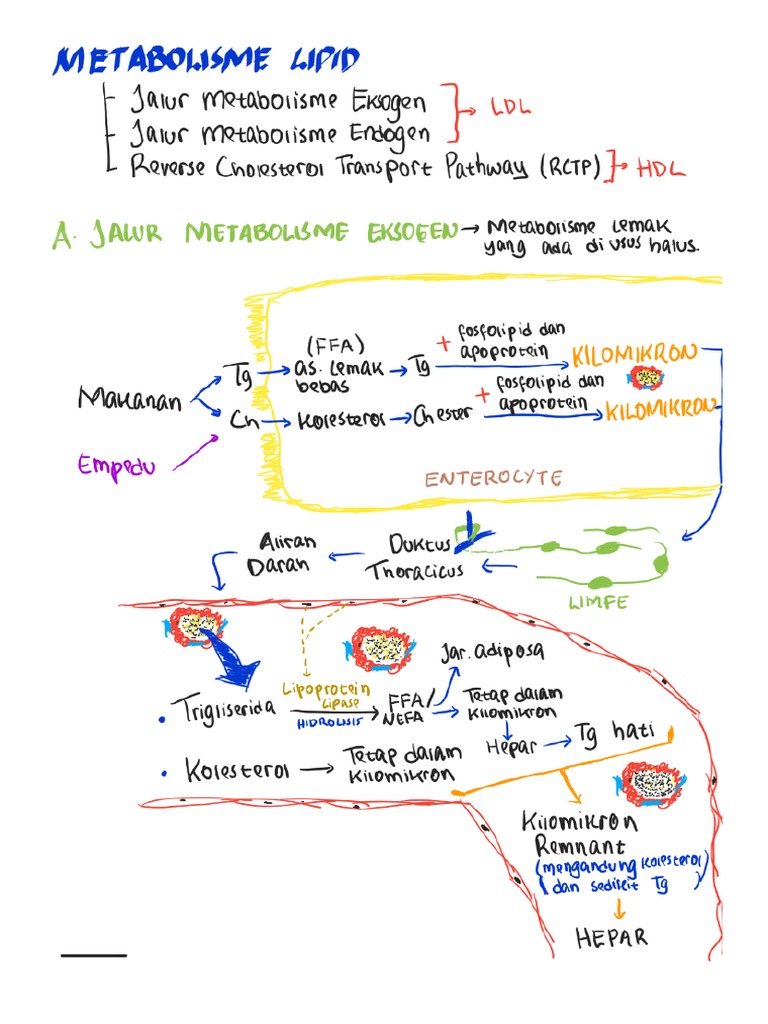 METABOLISME LIPID
Jalur Metabolisme Eksogen
Jalur Metabolisme Endogen
→ LDL
Reverse Cholesterol Transport Pathway (RCTP) → HDL
A. JALUR METABOLISME EKSOGEN → Metabolisme lemak
yang ada di usus halus.
Makanan
Empedu
Tg → (FFA)
as. lemak
bebas
→ Tg
+ fosfolipid dan
apoprotein
→ KILOMIKRON
Ch → Kolesterol → Ch ester
+ fosfolipid dan
apoprotein
→ KILOMIKRON
ENTEROCYTE
LIMFE
Duktus
Thoracicus
Aliran
Darah
• Trigliserida
Lipoprotein
Lipase
HIDROLISIS
FFA/
NEFA
Jar. adiposa
Tetap dalam
Kilomikron
Hepar → Tg hati
• Kolesterol → Tetap dalam
Kilomikron
Kilomikron
Remnant
(mengandung kolesterol
dan sedikit Tg)
HEPAR